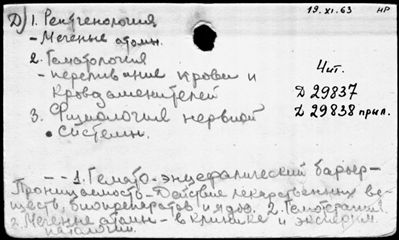 19.XI.63 НР
Д) 1. Рентгенология
- Меченые атомы.
2. Гематология
- переливание крови и
кровозаменителей
3. Физиология нервной
системы.
Чит.
Д 29837
Д 29838 прил.
-- 1. Гемато-энцефалический барьер-
Проницаемость-Действие лекарственных ве-
ществ, биопрепаратов и ядов. 2. Гемотерапия.
3. Меченые атомы - в клинике и эксперим.
патологии.